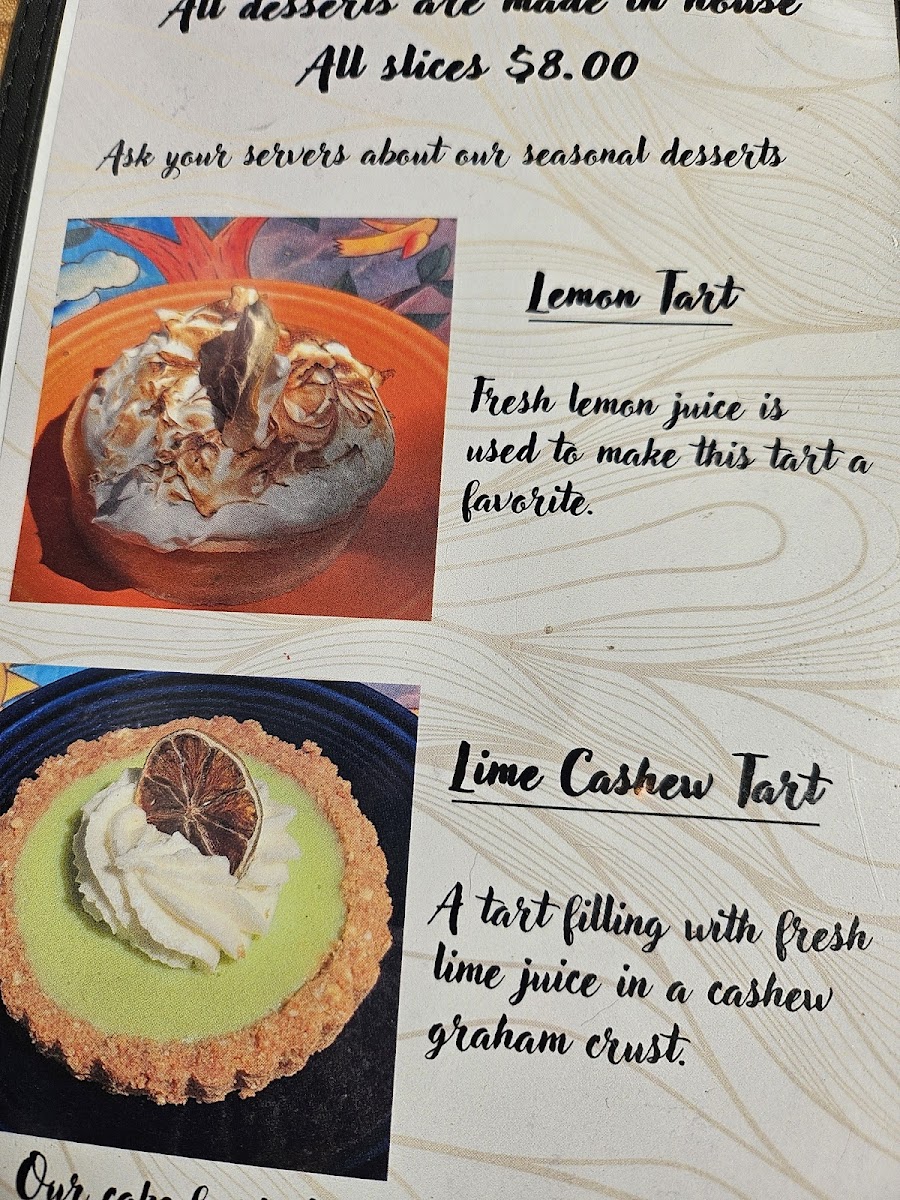 All desserts are made in house
All slices $8.00
Ask your servers about our seasonal desserts
Lemon Tart
Fresh lemon juice is
used to make this tart a
favorite.
Lime Cashew Tart
A tart filling with fresh
lime juice in a cashew
graham crust.
Our cake